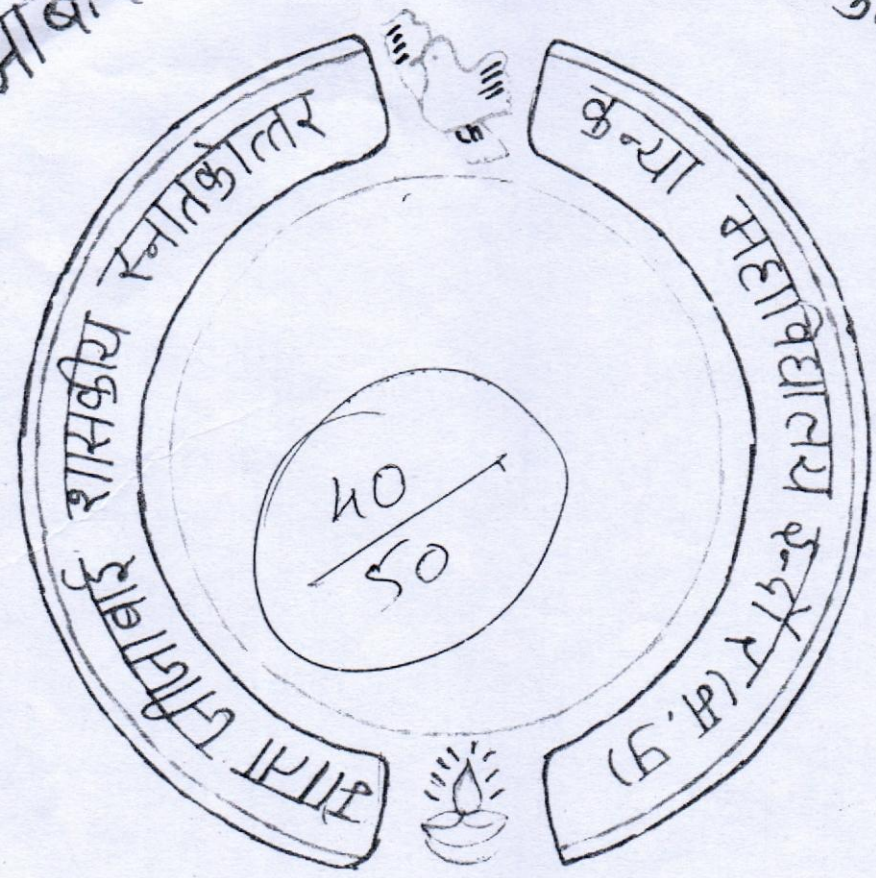 माता जीजाबाई शासकीय स्नातकोत्तर
कन्या महाविद्यालय इन्दौर (म.प्र)
40
50